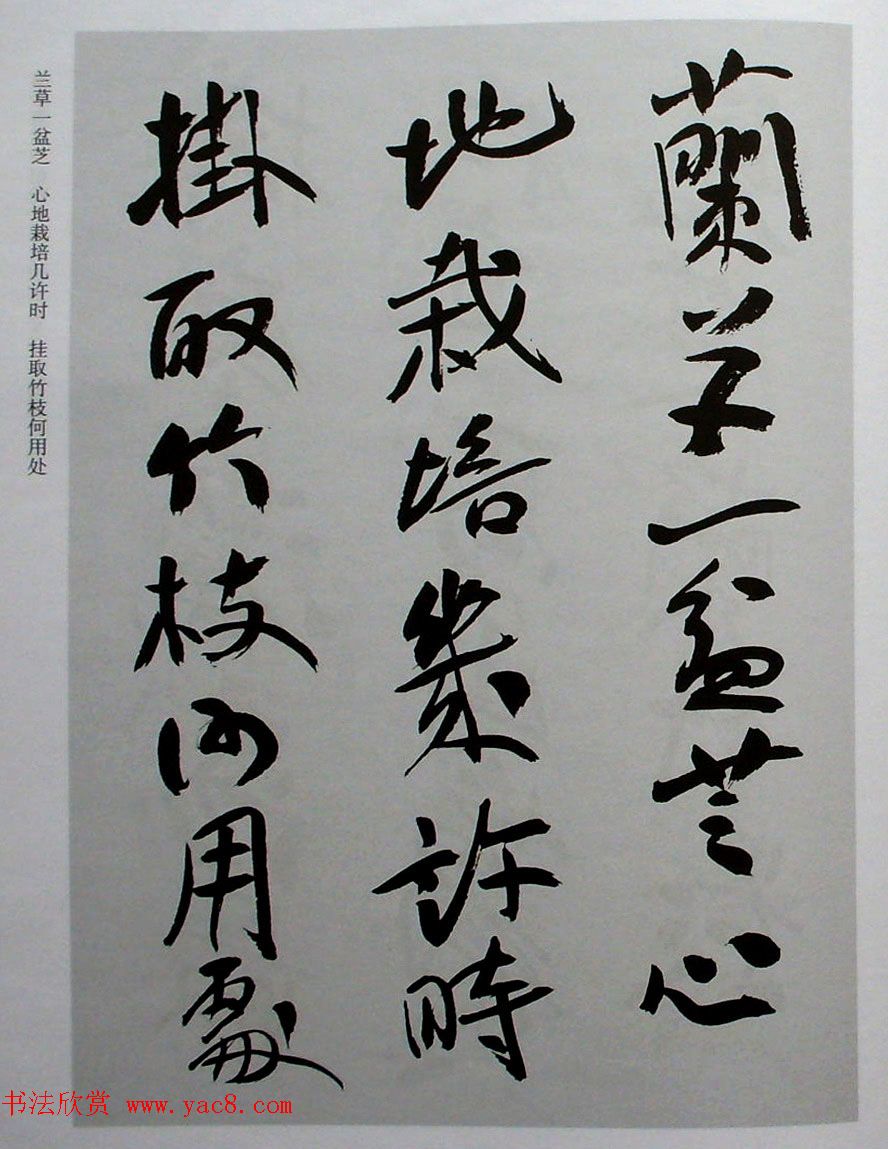 蘭草一盆芝心
地栽培幾許時
掛取竹枝何用處
兰草一盆芝　心地栽培几许时　挂取竹枝何用处
书法欣赏 www.yac8.com